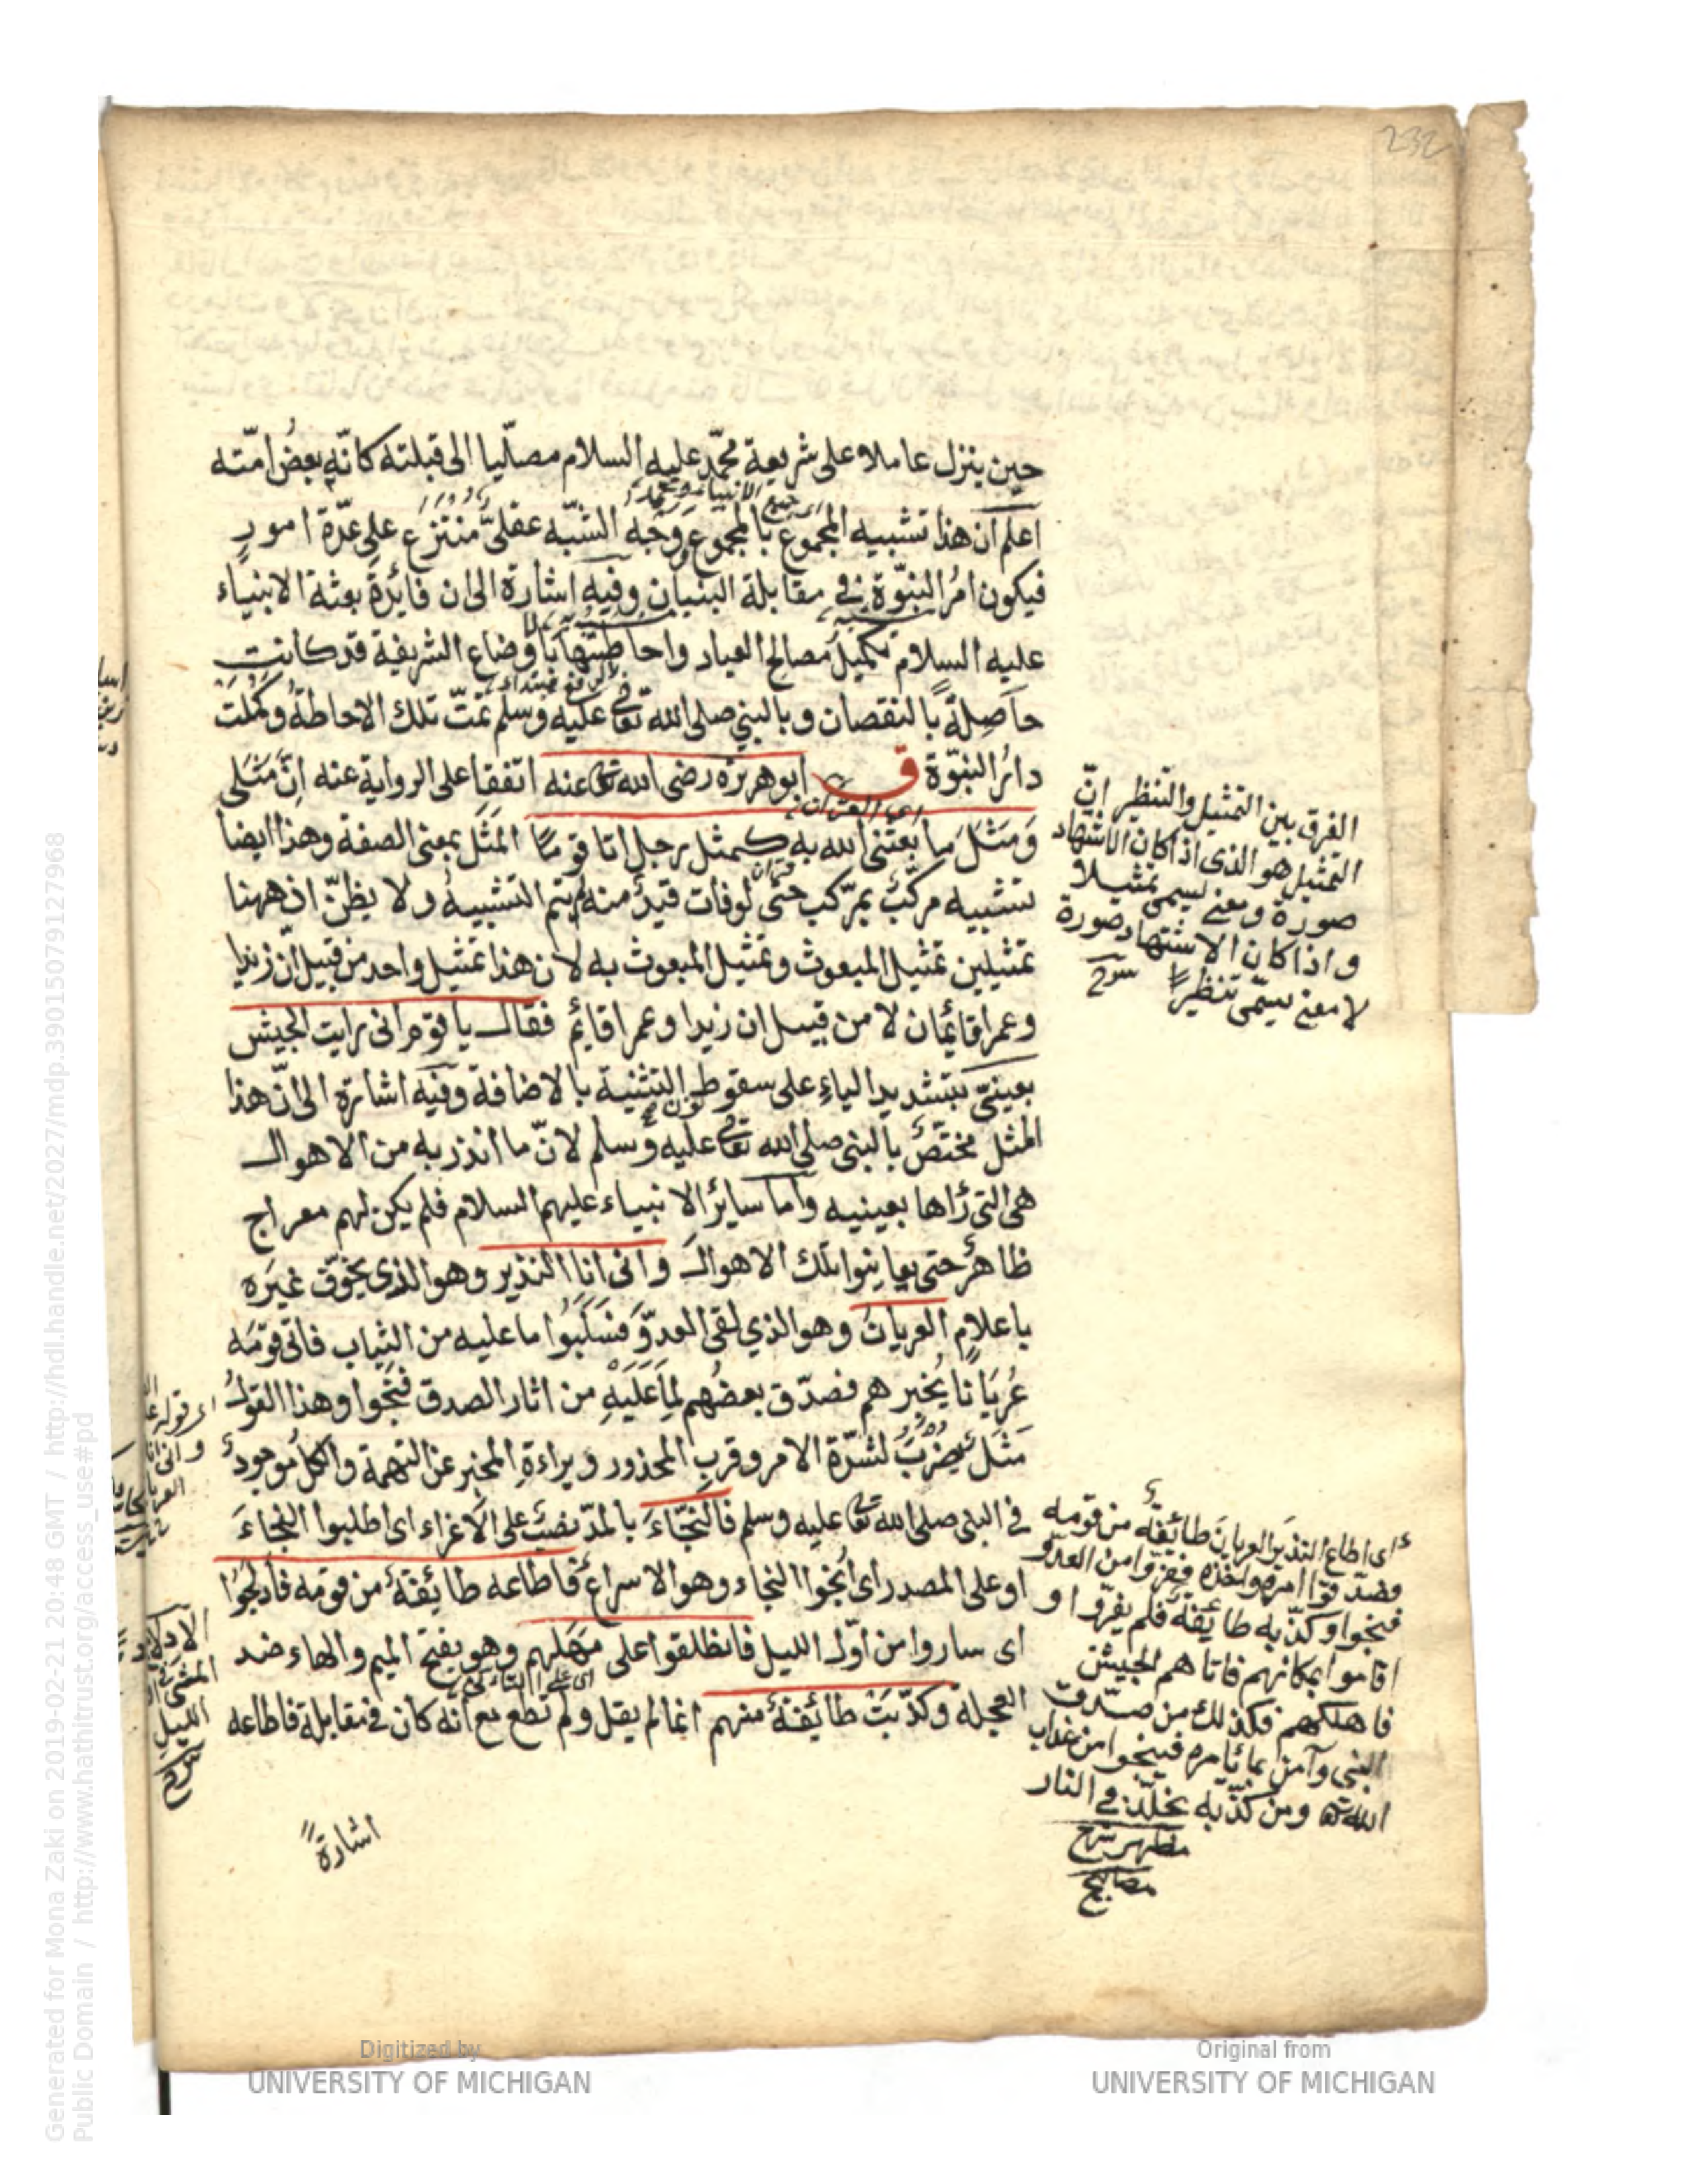 232
حين ينزل عاملا على شريعة محمّد عليه السلام مصلّيا الى قبلته كانّه بعضُ امّته
اعلم ان هذا تشبيه المجموع بالمجموع وَوَجْهُ الشبّه عقلىٌّ مُنْتَزَع على عدّة امورٍ
فيكون امرُ النبوّة فى مقابلة البنيان وفيه اشارة الى ان فايدة بعثة الانبياء
عليه السلام تكميلُ مصالح العباد واحاطتها باوضاع الشريفة قد كانتِ
حاصلةً بالنقصان وبالبنى صلى الله تعالى عليه وسلم تمّت تلك الاحاطةُ وكملت
دائرُ النبوّة ق ابو هريرة رضى الله تعالى عنه اتفقا على الرواية عنه اِنَّ مَثَلى
وَمَثَلَ ما بعثنى الله به كمثل رجل اتا قومًا المَثَل بمعنى الصفة وهذا ايضا
تشبيه مركّب بمرّكب حتى لوفات قيدٌ منه لم يتم التشبيهُ ولا يظنّ ان ههنا
تمثيلين تمثيل المبعوث وتمثيل المبعوث به لان هذا تمثيل واحد من قبيل انّ زيدا
وعمرا قائمان لا من قبيل ان زيدا وعمرا قايم فقال يا قوم انى رايت الجيش
بعينىّ بتشديد الياء على سقوط نون التثنية بالاضافة وفيه اشارة الى انّ هذا
المثل مختصّ بالبنى صلى الله تعالى عليه وسلم لانّ ما انذر به من الاهوال
هى التى رٰاها بعينيه واما سائر الانبياء عليهم السلام فلم يكن لهم معراج
ظاهرٌ حتى يعاينوا تلك الاهوال وانى انا النذير وهو الذى يخوّف غيَره
باعلامٍ العريانُ وهو الذي لقى العدوَّ فَسَلَبُوا ما عليه من الثياب فاتى قومَه
عُريَانًا يُخبرهم فصدّق بعضُهم لِمَا عَلَيْهِ من اثار الصدق فنَجوا وهذا القولُ
مَثَل يُضْرَبُ لشدّة الامر وقرب المحذور وبراءة المخبر عن التهمة والكلُ موجودٌ
فى البنى صلى الله تعالى عليه وسلم فالنجَّاءَ بالمدّ نصبٌ على الاغراء اى اطلبوا النجاءَ
او على المصدر اى انجُوا النجاء وهو الاسراع فاطاعه طائفةٌ من قومه فاَدلجُوا
اى ساروا من اوّل الليل فانطلقوا على مَهَلهم وهو بفتح الميم والهاء ضد
العجلة وكذّبَتْ طائفةٌ منهم انما لم يقل ولم تطع مع انه كان فى مقابلة فاطاعه
اشارةً
الفرق بين التمثيل والتنظير انّ
التمثيل هو الذى اذا كان الاشتهاد
صورة ومعنى يسمى تمثيلا
واذا كان الاشتهاد صورة
لا معنى يسمّى تنظيرًا
اى اطاع النذيرَ العريانَ طائفةٌ من قومه
فصدّقوا امره وانخذه ففرّوا من العدو
فنجوا وكذّبه طائفةٌ فلم يفرّوا و
اقاموا بمكانهم فاتاهم الجيش
فاهلكهم فكذلك من صدّق
النبى وآمن بما يأمره فينجوا من عذاب
الله تعالى ومن كذّبه يخلّد فى النار
مظهر شرح
مصابيح
Digitized by
UNIVERSITY OF MICHIGAN
Original from
UNIVERSITY OF MICHIGAN
Generated for Mona Zaki on 2019-02-21 20:48 GMT / http://hdl.handle.net/2027/mdp.39015079127968
Public Domain / http://www.hathitrust.org/access_use#pd